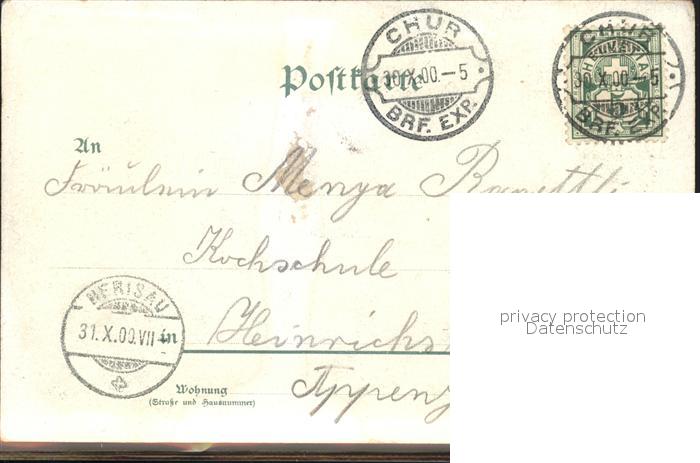 CHUR
30.X.00.-5
BRF. EXP.
CHUR
30.X.00.-5
BRF. EXP.
Postkarte
An
Fräulein Menga
Kochschule
HERISAU
31.X.00.VII
in Heinrichs
Appenz
Wohnung
(Straße und Hausnummer)
privacy protection
Datenschutz